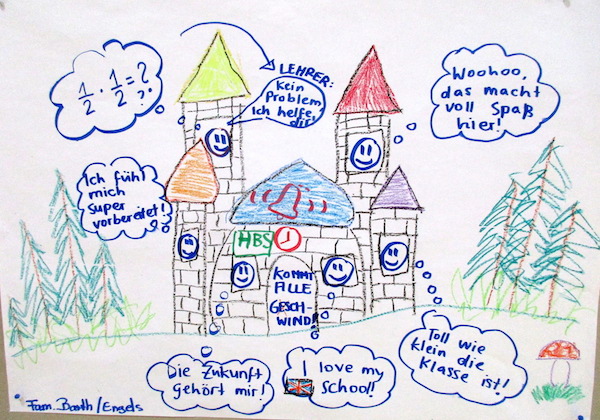 1/2 · 1/2 = ?
?
LEHRER:
Kein
Problem
Ich helfe
dir!
Woohoo,
das macht
voll Spaß
hier!
Ich fühl
mich
super
vorbereitet!
HBS
KOMMT
ALLE
GESCH-
WIND!!
Die Zukunft
gehört mir!
I love my
School!
Toll wie
klein die
Klasse ist!
Fam. Barth/Engels